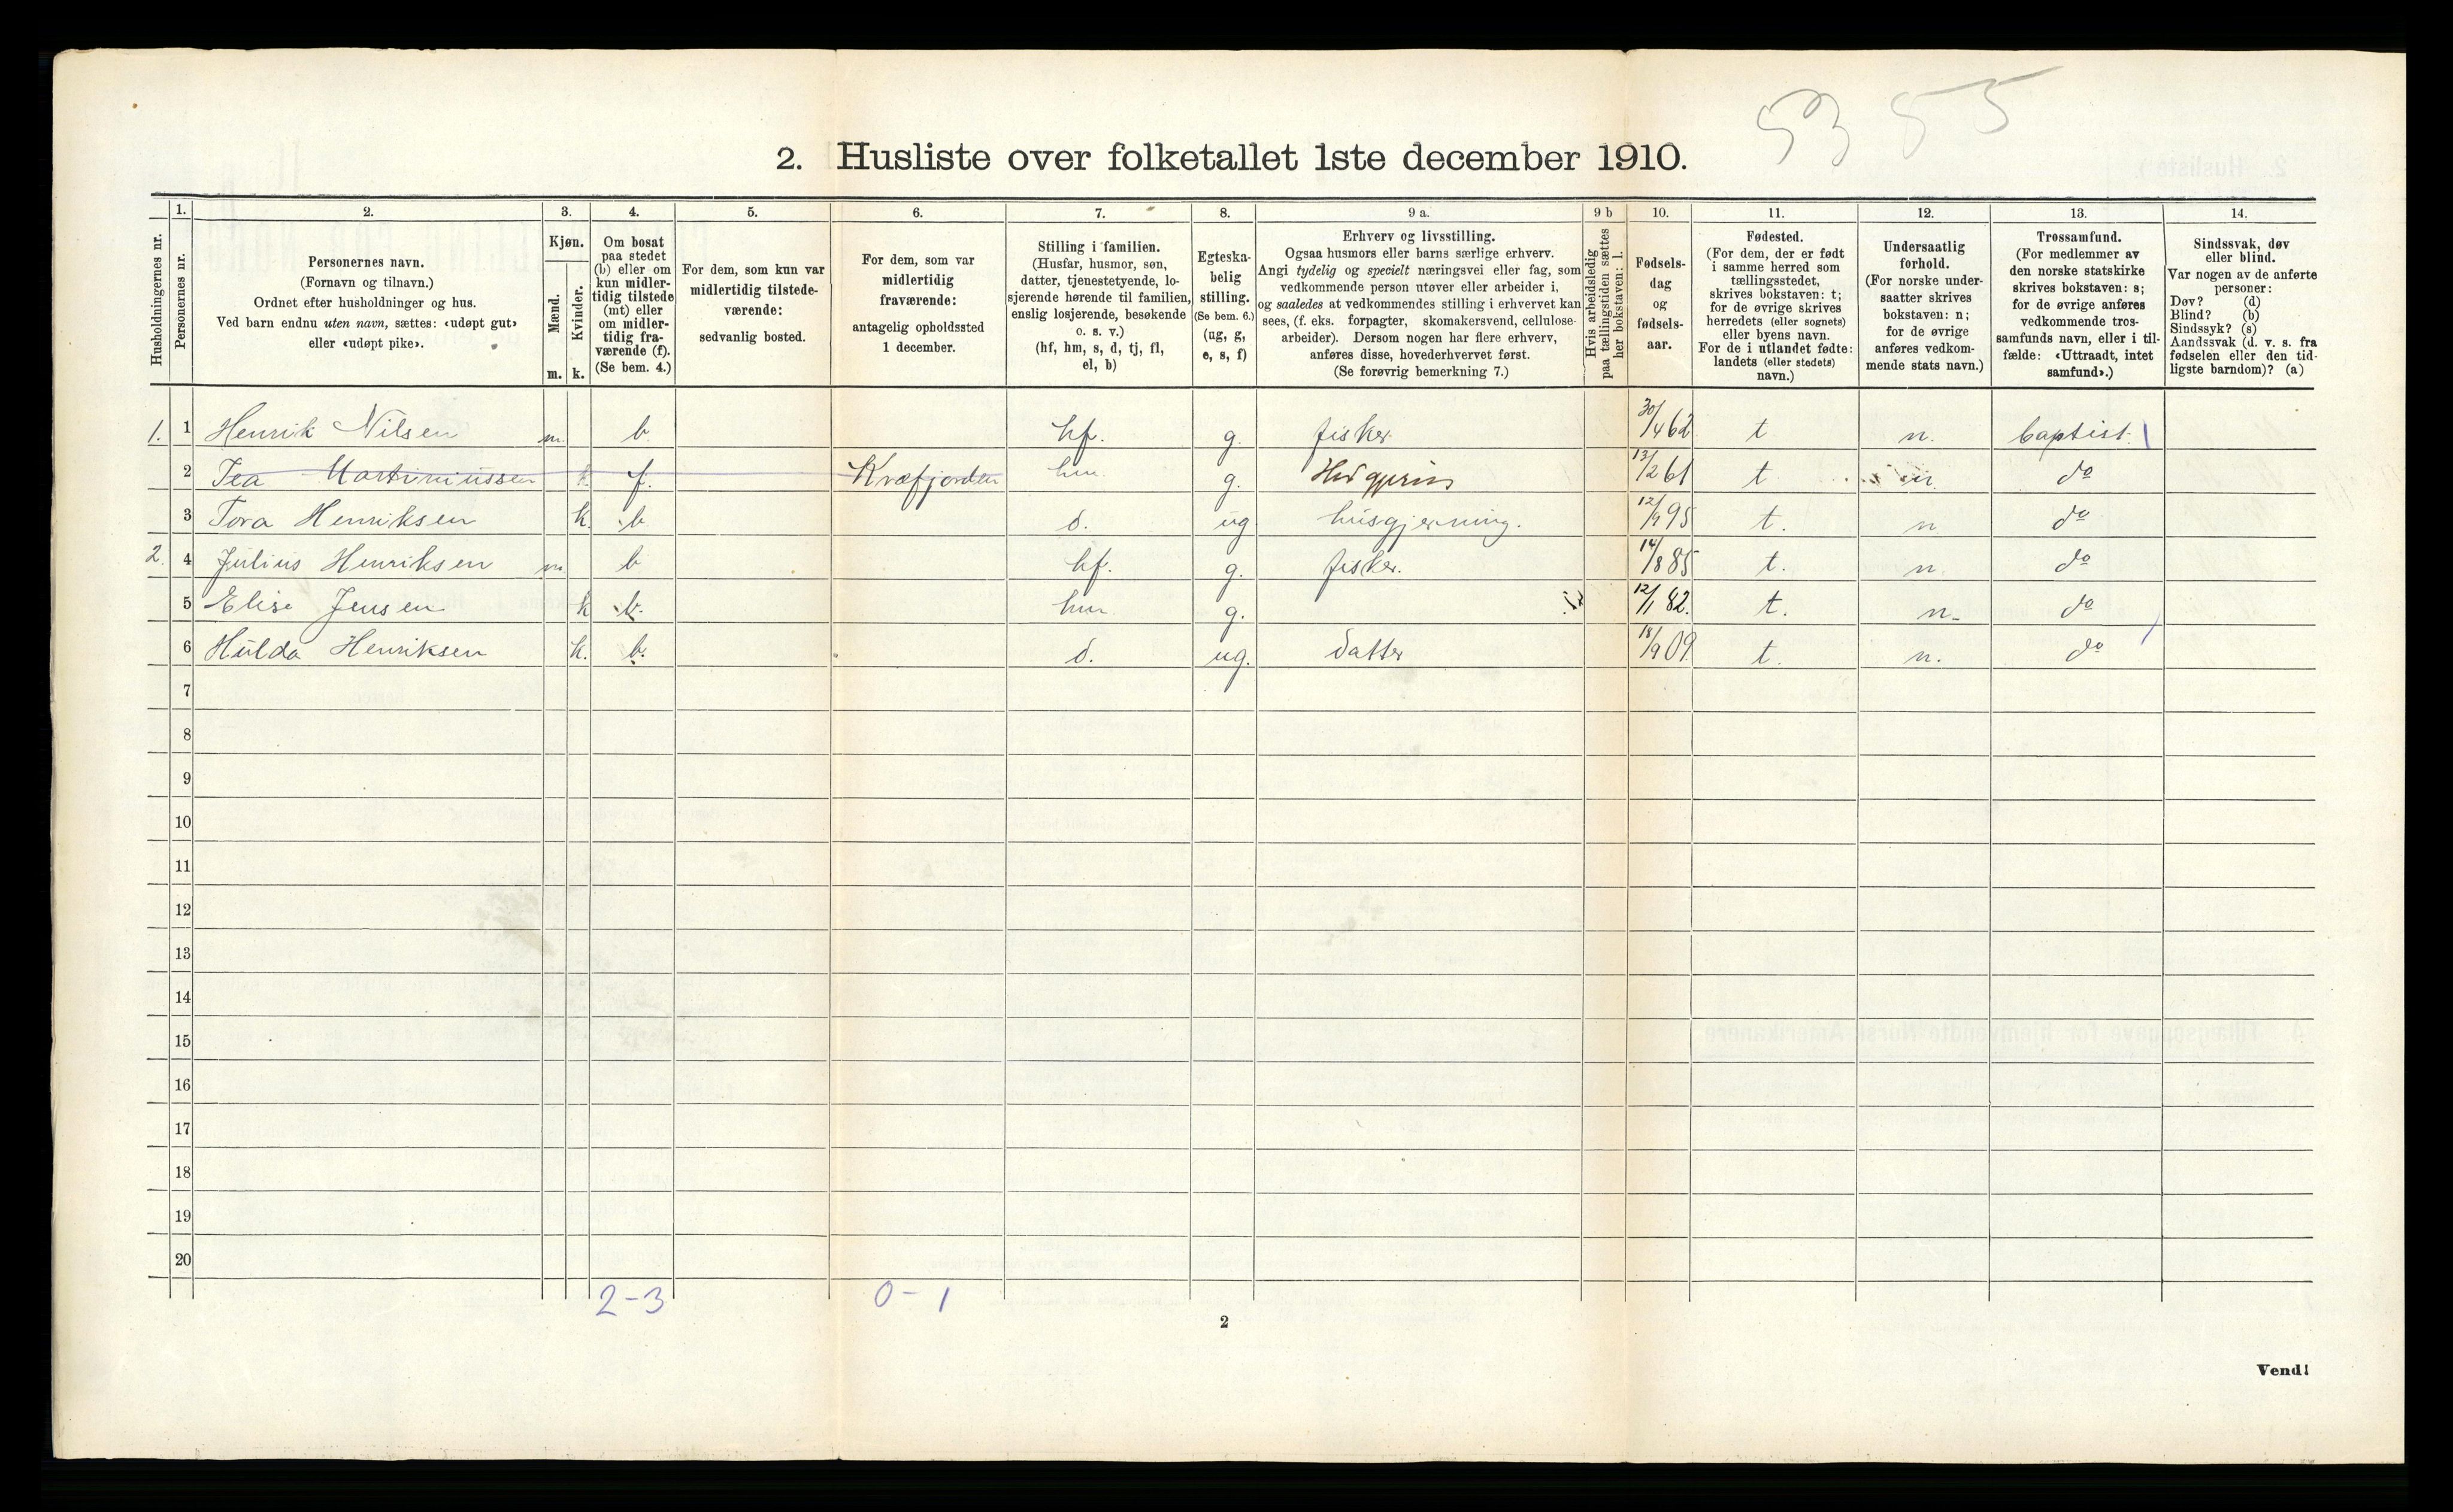 53 85
2. Husliste over folketallet 1ste december 1910.
Husholdningernes nr.
1. Personernes nr.
2. Personernes navn.
(Fornavn og tilnavn.)
Ordnet efter husholdninger og hus.
Ved barn endnu uten navn, sættes: «udøpt gut»
eller «udøpt pike».
3. Kjøn.
Mænd. Kvinder.
m. k.
4. Om bosat
paa stedet
(b) eller om
kun midler-
tidig tilstede
(mt) eller
om midler-
tidig fra-
værende (f).
(Se bem. 4.)
5. For dem, som kun var
midlertidig tilstede-
værende:
sedvanlig bosted.
6. For dem, som var
midlertidig
fraværende:
antagelig opholdssted
1 december.
7. Stilling i familien.
(Husfar, husmor, søn,
datter, tjenestetyende, lo-
sjerende hørende til familien,
enslig losjerende, besøkende
o. s. v.)
(hf, hm, s, d, tj, fl,
el, b)
8. Egteska-
belig
stilling.
(Se bem. 6.)
(ug, g,
e, s, f)
9 a. Erhverv og livsstilling.
Ogsaa husmors eller barns særlige erhverv.
Angi tydelig og specielt næringsvei eller fag, som
vedkommende person utøver eller arbeider i,
og saaledes at vedkommendes stilling i erhvervet kan
sees, (f. eks. forpagter, skomakersvend, cellulose-
arbeider). Dersom nogen har flere erhverv,
anføres disse, hovederhvervet først.
(Se forøvrig bemerkning 7.)
9 b Hvis arbeidsledig
paa tællingstiden sættes
her bokstaven: l.
10. Fødsels-
dag
og
fødsels-
aar.
11. Fødested.
(For dem, der er født
i samme herred som
tællingsstedet,
skrives bokstaven: t;
for de øvrige skrives
herredets (eller sognets)
eller byens navn.
For de i utlandet fødte:
landets (eller stedets)
navn.)
12. Undersaatlig
forhold.
(For norske under-
saatter skrives
bokstaven: n;
for de øvrige
anføres vedkom-
mende stats navn.)
13. Trossamfund.
(For medlemmer av
den norske statskirke
skrives bokstaven: s;
for de øvrige anføres
vedkommende tros-
samfunds navn, eller i til-
fælde: «Uttraadt, intet
samfund».)
14. Sindssvak, døv
eller blind.
Var nogen av de anførte
personer:
Døv? (d)
Blind? (b)
Sindssyk? (s)
Aandssvak (d. v. s. fra
fødselen eller den tid-
ligste barndom)? (a)
1. 1 Henrik Nilsen m. b. hf. g. fisker 30/4 62 t n. baptist.
2 Tea Martiniussen k. f. Kvæfjorden hm g. 13/2 61 t n d<sup>o</sup>
3 Tora Henriksen k. b d. ug husgjerning. 12/9 95 t. n d<sup>o</sup>
2. 4 Julius Henriksen m b hf. g. fisker. 14/8 85 t. n. d<sup>o</sup>
5 Elise Jensen k b. hm g. 12/1 82. t. n. d<sup>o</sup>
6 Hulda Henriksen k. b. d. ug. Datter 18/9 09 t. n. d<sup>o</sup>
7
8
9
10
11
12
13
14
15
16
17
18
19
20
2-3 0-1
2
Vend!